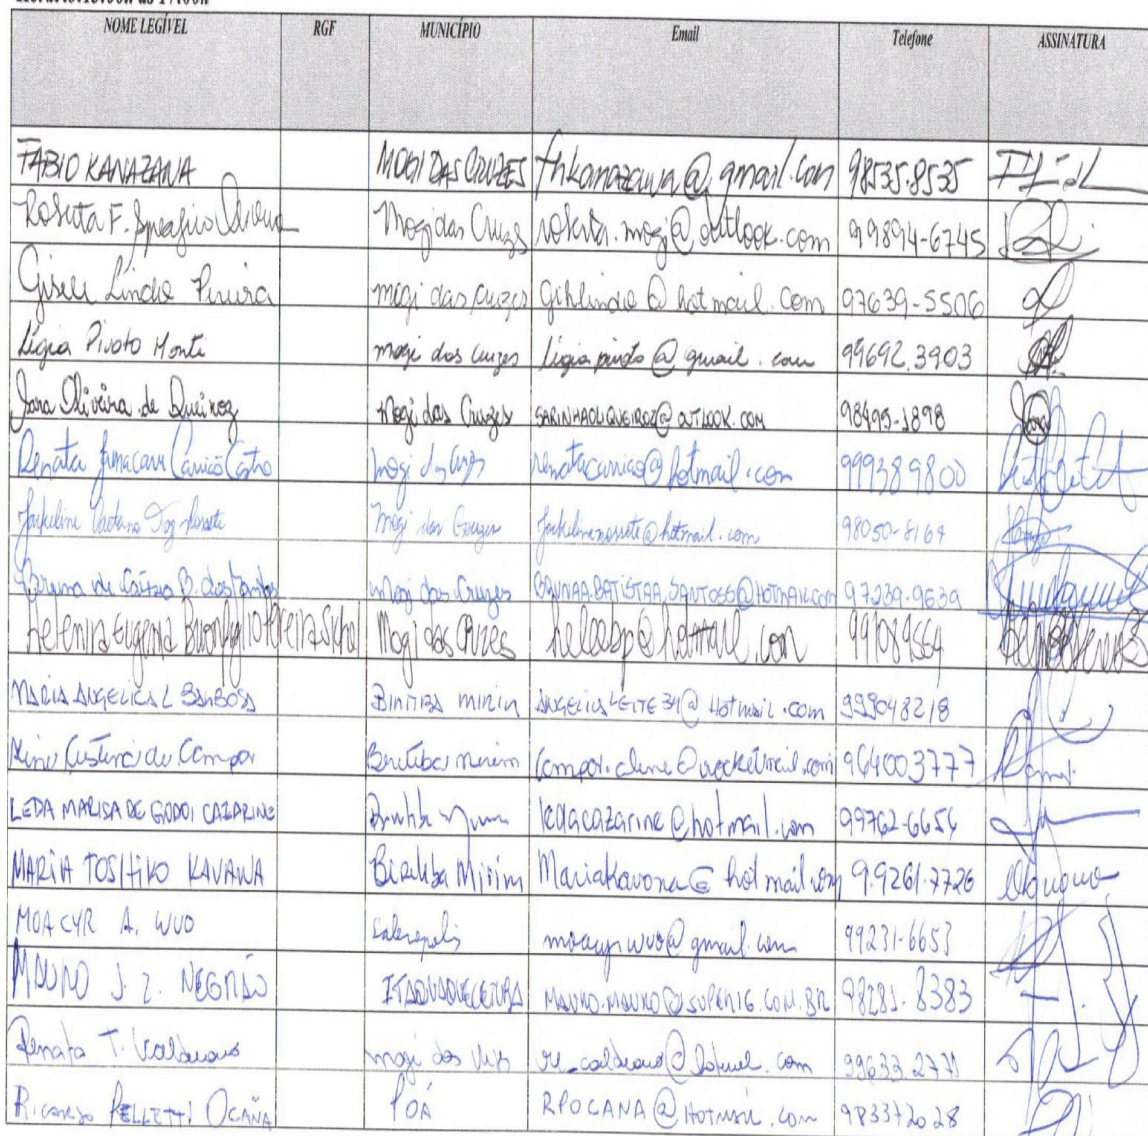 NOME LEGÍVEL RGF MUNICÍPIO Email Telefone ASSINATURA
FABIO KANAZAWA MOGI DAS CRUZES fhkanazawa@gmail.com 98535.8535
Roberta F. Mogi das Cruzes roberta.mogi@outlook.com 99894-6745
Gisele Lindio Pereira mogi das cruzes gihlindio@hotmail.com 97639-5506
Ligia Pivoto Monti mogi das cruzes 99692.3903
Sara Oliveira de Queiroz Mogi das Cruzes SARINHAOLQUEIROZ@OUTLOOK.COM 98495-1898
Renata Caniço Castro Mogi das Cruzes renatacanico@hotmail.com 999389800
Jackeline Caetano Mogi das Cruzes 98050-8169
Bruna de Cássia B. dos Santos Mogi das Cruzes BRUNAA.BATISTAA.SANTOSS@HOTMAIL.COM 97239-9639
Eugenia Mogi das Cruzes heloebp@hotmail.com
MARIA ANGELICA L BARBOSA BIRITIBA MIRIM ANGELICALEITE34@Hotmail.com 999048218
Aline Custódio de Campos Biritiba Mirim campos.aline@rocketmail.com 964003777
LEDA MARISA DE GODOI CAZARINE ledacazarine@hotmail.com 99762-6654
MARIA TOSHIKO KAVANA Biritiba Mirim Mariakavana@hotmail.com 9.9261.7726
MOACYR A. WUO Salesopolis moacyrwuo@gmail.com 99231-6653
MAURO J. Z. NEGRÃO ITAQUAQUECETUBA 98281.8383
Renata T. mogi das 99633.2771
Ricardo PELLETTI OCAÑA POÁ RPOCANA@Hotmail.com 983372028